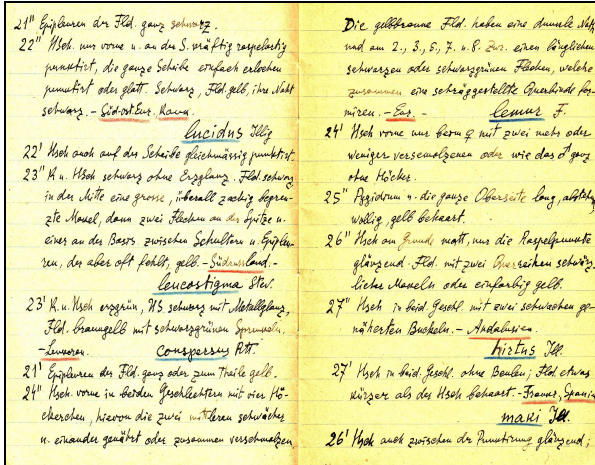 21" Epipleuren der Fld. ganz schwarz.
22" Hsch. nur vorne u. an der S. kräftig raspelartig
punktirt, die ganze Scheibe einfach erloschen
punktirt oder glatt. Schwarz, Fld gelb, ihre Naht
schwarz. – Süd-ost-Eur.
lucidus Illig
22' Hsch auch auf der Scheibe gleichmässig punktirt.
23" K. u. Hsch schwarz ohne Erzglanz. Fld. schwarz,
in der Mitte eine grosse, überall zackig begren-
zte Makel, dann zwei Flecken an der Spitze u.
einer an der Basis zwischen Schultern u. Epipleu-
ren, der aber oft fehlt, gelb. – Südrussland. –
leucostigma Stev.
23' K. u. Hsch erzgrün, US schwarz mit Metallglanz,
Fld. braungelb mit schwarzgrünen
conspersus
21' Epipleuren der Fld. ganz oder zum Theile gelb.
24" Hsch. vorne in beiden Geschlechtern mit vier Hö-
ckerchen, hievon die zwei mittleren schwächer
u. einander genährt oder zusammen verschmolzen
Die gelbbraune Fld. haben eine dunkle Naht
und am 2., 3., 5., 7. u. 8. Zwr. einen länglichen
schwarzen oder schwarzgrünen Flecken, welche
zusammen eine schräggestellte Querbinde for-
miren. – Eur. –
lemur F.
24' Hsch vorne nur beim ♀ mit zwei mehr oder
weniger verschmolzenen oder wie das ♂ ganz
ohne Höcker.
25" Pygidium u. die ganze Oberseite lang, abstehend
wollig, gelb behaart.
26" Hsch am Grunde matt, nur die Raspelpunkte
glänzend. Fld. mit zwei Querreihen schwärz-
licher Makeln oder einfarbig gelb.
27" Hsch in beid. Geschl. mit zwei schwachen ge-
näherten Buckeln. – Andalusien.
hirtus Ill.
27' Hsch in beid. Geschl. ohne Beulen; Fld etwas
kürzer als der Hsch behaart. – Spanien
maki Ill.
26' Hsch auch zwischen der Punktirung glänzend;